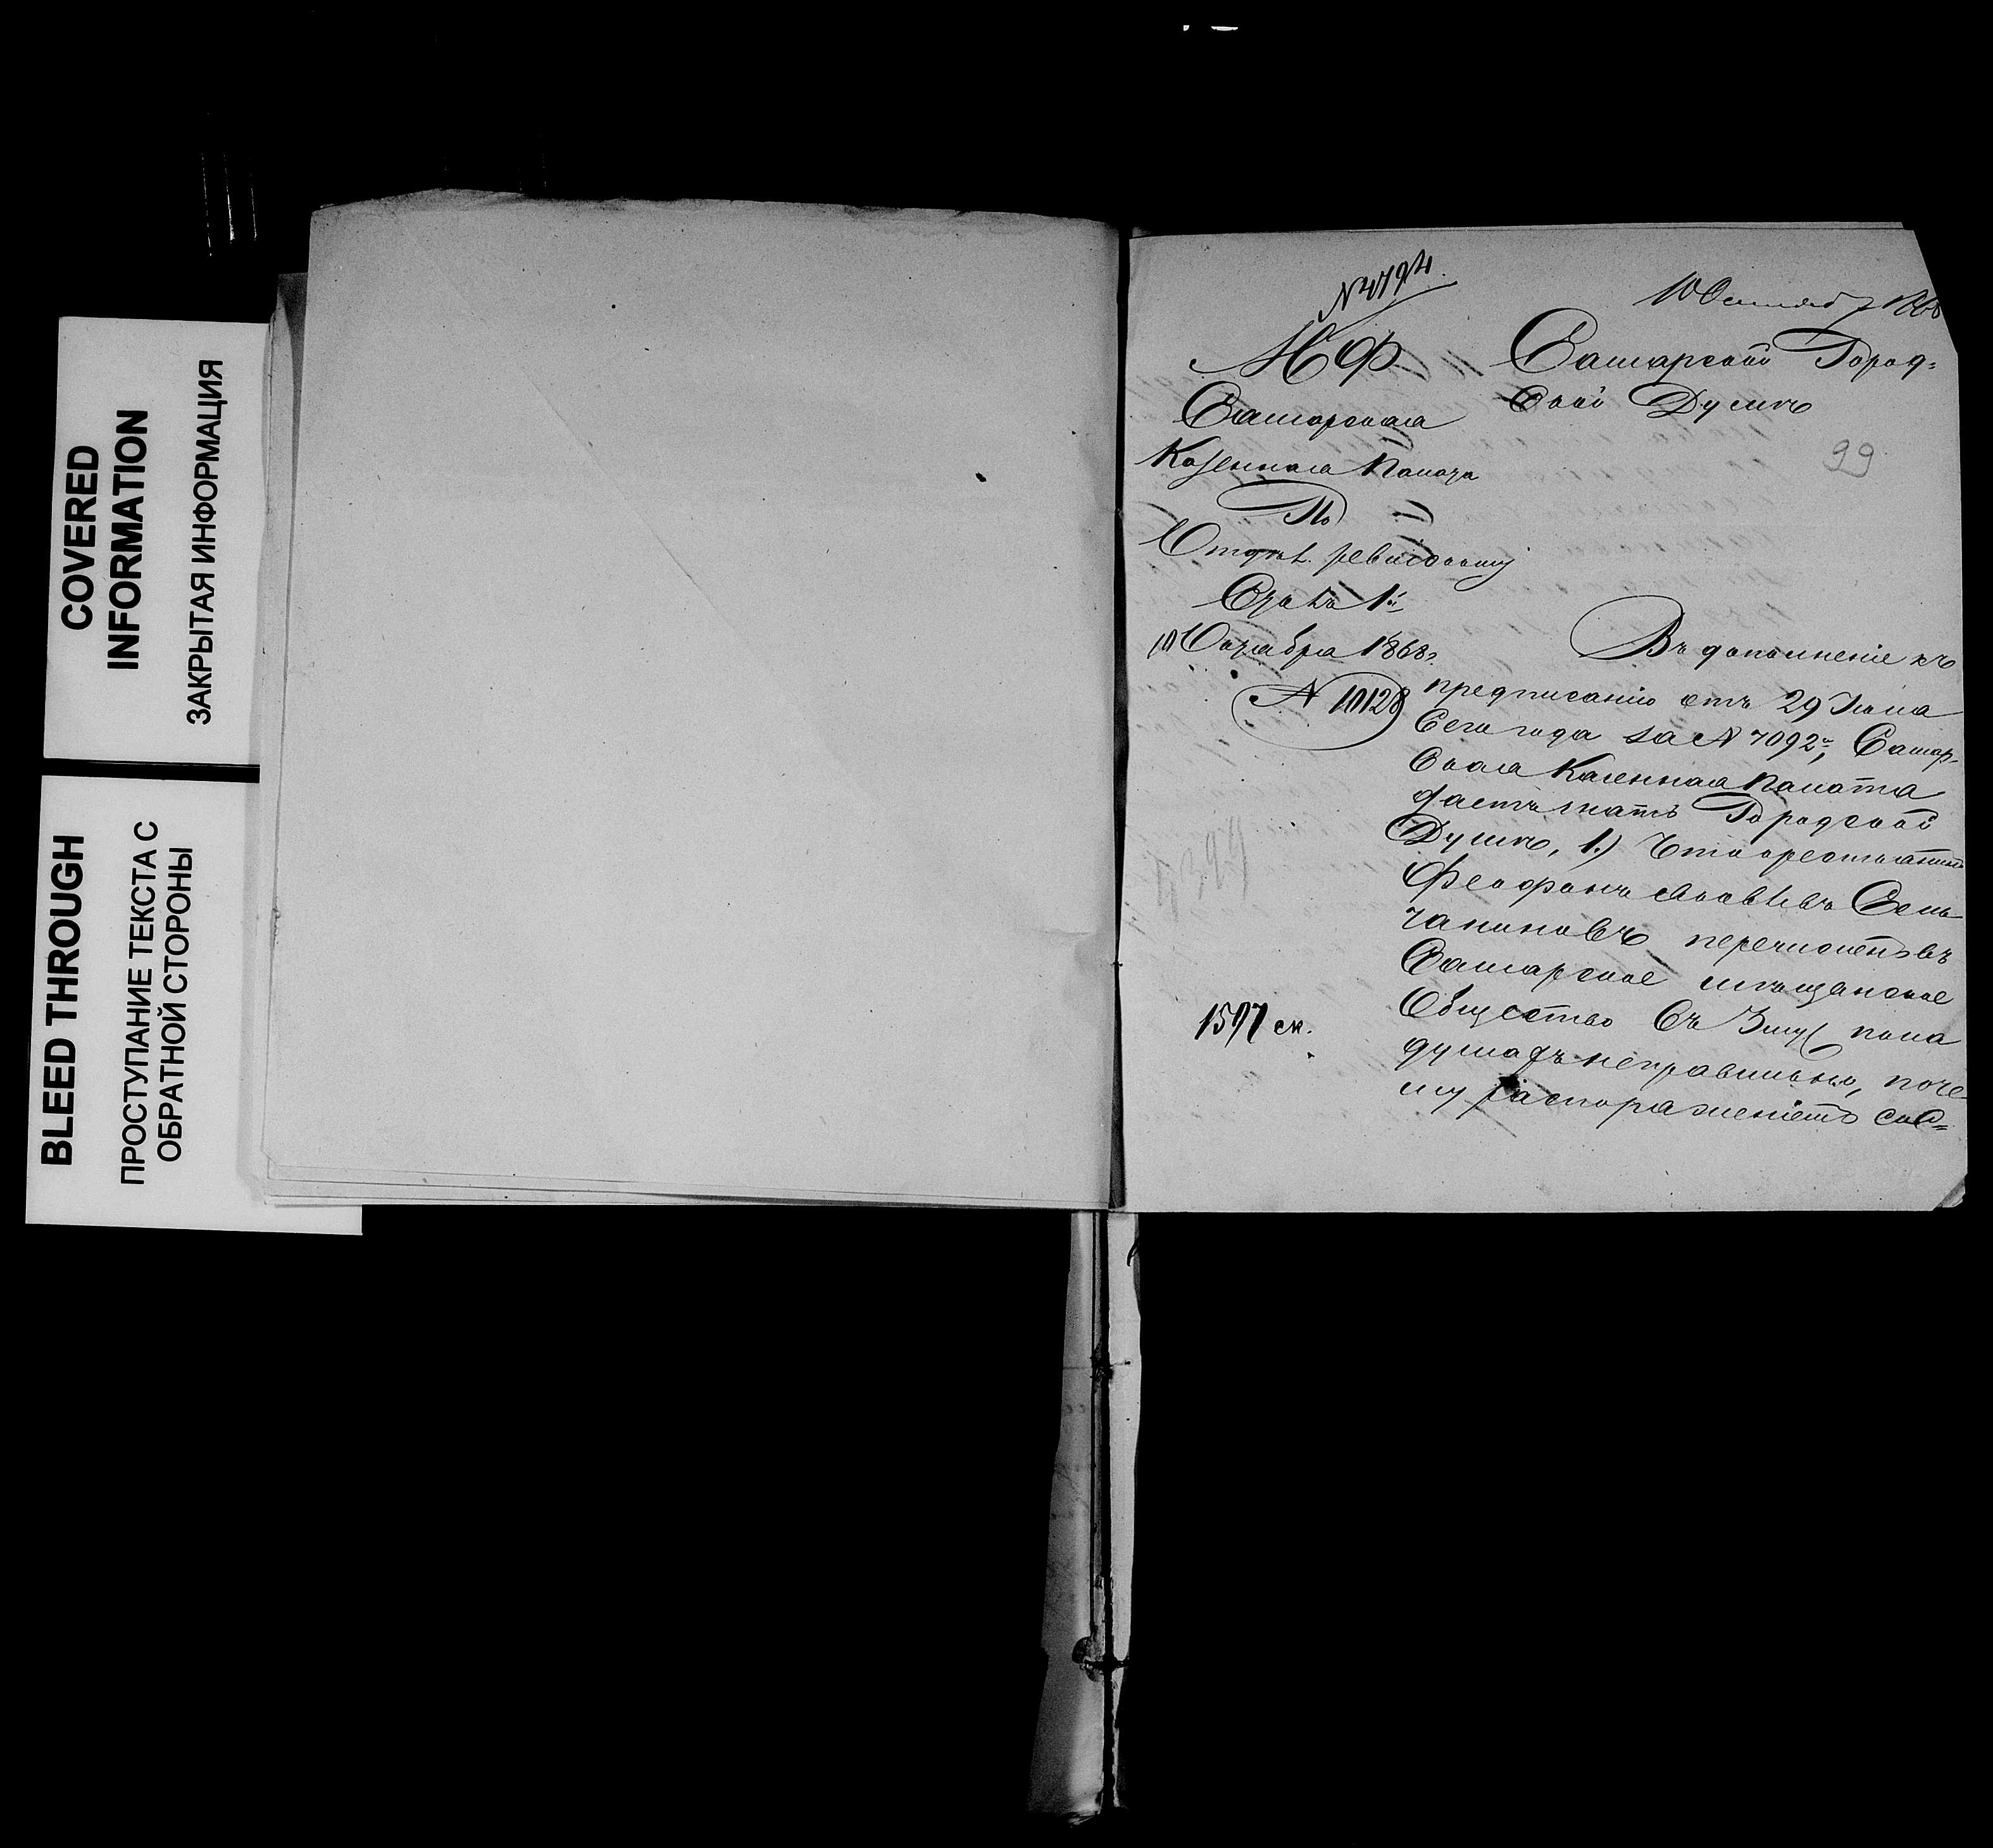 COVERED
INFORMATION
ЗАКРЫТАЯ ИНФОРМАЦИЯ
BLEED THROUGH
ПРОСТУПАНИЕ ТЕКСТА С
ОБРАТНОЙ СТОРОНЫ
10 Октяб 1868
М Ф
Самарская
Казенная Палата
По
Отдѣл. ревизскому
Столъ 1й
10 Октября 1868 г.
N 10128
1597 ск.
Самарской Город=
ской Думѣ
99
Въ дополненіе къ
предписанію отъ 29 Іюля
сего года за N 7092м, Самар-
ская Казенная Палата
даетъ знать Городской
Думѣ, 1.) Что
Феофанъ Яковлевъ
перечисленъ въ
Самарское мѣщанское
Общество съ 3 муж пола
душами неправильно, поче-
му распоряженіемъ